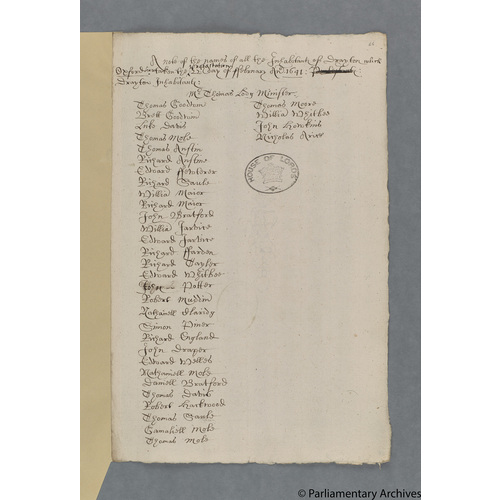 A note of the names of all the Inhabitants of Drayton which
Protestation
taken the day of ffebruary 1641:
Drayton Inhabitants:
Mr Thomas Minister
Thomas Goodwin
Brett Goodwin
Luke Davis
Thomas Mole
Thomas Austin
Richard Austine
Edward
Richard Saule
Willia Maior
Richard Maior
John Bratford
Willia Jartire
Edward Jartire
Richard ffarden
Richard Tayler
Edward Whitbee
John Potter
Robert
Nathaniell
Simon
Richard England
John Draper
Edward Welles
Nathaniell Mole
Daniell Bratford
Thomas Davis
Robert Harkwood
Thomas Saule
Gamaliell Mole
Thomas Mole
Thomas Moore
Willia Whitbee
John Hawkins
Nicholas
HOUSE OF LORDS
© Parliamentary Archives